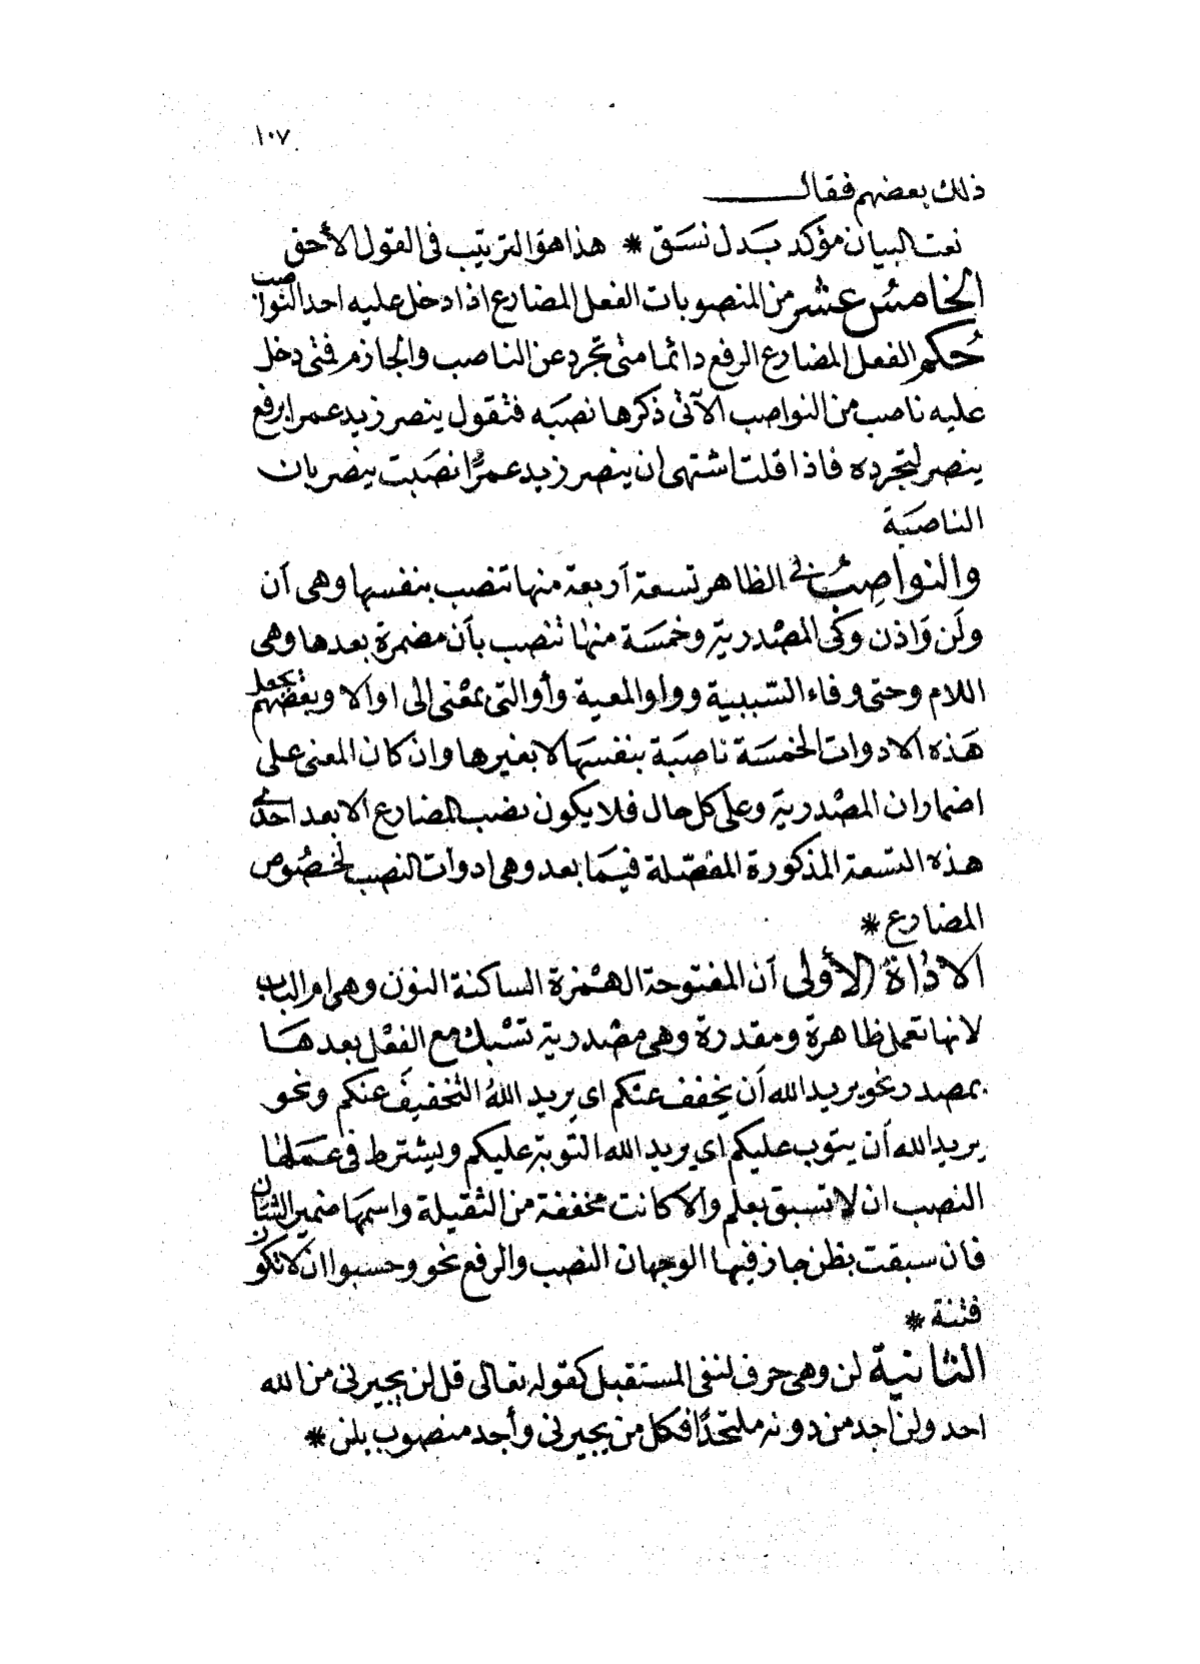 ١٠٧
ذلك بعضهم فقال
نعت البيان مؤكد بَدل نسَق * هذا هوَ الترتيب فى القول الأحق
الخامسُ عشر من المنصوبات الفعل المضارع اذا دخل عليه احد النواصب
حُكم الفعل المضارع الرفع دائما متى تجرد عن الناصب والجازم فمتى دخل
عليه ناصب من النواصب الآتى ذكرها نصبَه فتقول ينصر زيد عمرا برفع
ينصر لتجرده فاذا قلت اشتهى ان ينصر زيد عمرًا نصَبت ينصر بان
الناصَبة
والنواصِبُ فى الظاهر تسعة أربعة منها تنصب بنفسها وهى أن
ولَن وَاذن وَكَى المصْدرية وخمسَة منهَا تنصب بأن مضمرة بعدها وهى
اللام وحتى وفاء السّببية وواو المعية وأو التى بمعْنى الى او الا وبعْضهم يجعل
هَذه الادوات الخمسَة ناصبَة بنفسَها لا بغيرها وان كان المعنى على
اضمار ان المصْدرية وعلى كل حال فلا يكون نصب المضارع الا بعد احدى
هذه التسعة المذكورة المفصّلة فيمَا بعد وهى ادوات النصب لخصُوص
المضارع *
الاداةُ الأولى أن المفتوحة الهمْزة الساكنة النوَن وهى ام الباب
لانها تعمل ظاهرة ومقدرة وهى مصْدرية تسْبك مع الفعْل بعدهَا
بمصدر نحو يريد الله أن يخفف عنكم اى يريد اللهُ التخفيفَ عنكم ونحو
يريد الله أن يتوب عليكم اى يريد الله التوبة عليكم ويشترط فى عمَلهَا
النصب ان لا تسبق بعلم والا كانت مخففة من الثقيلة واسمهَا ضمير الشان
فان سبقت بظن جاز فيها الوجهان النصب والرفع نحو وحسبوا ان لا تكون
فتنة *
الثانية لن وهى حرف لنفى المستقبل كقوله تعالى قل لن يجيرنى من الله
احد ولن أجد من دونه ملتحدًا فكل من يجيرنى وأجد منصوب بلن *